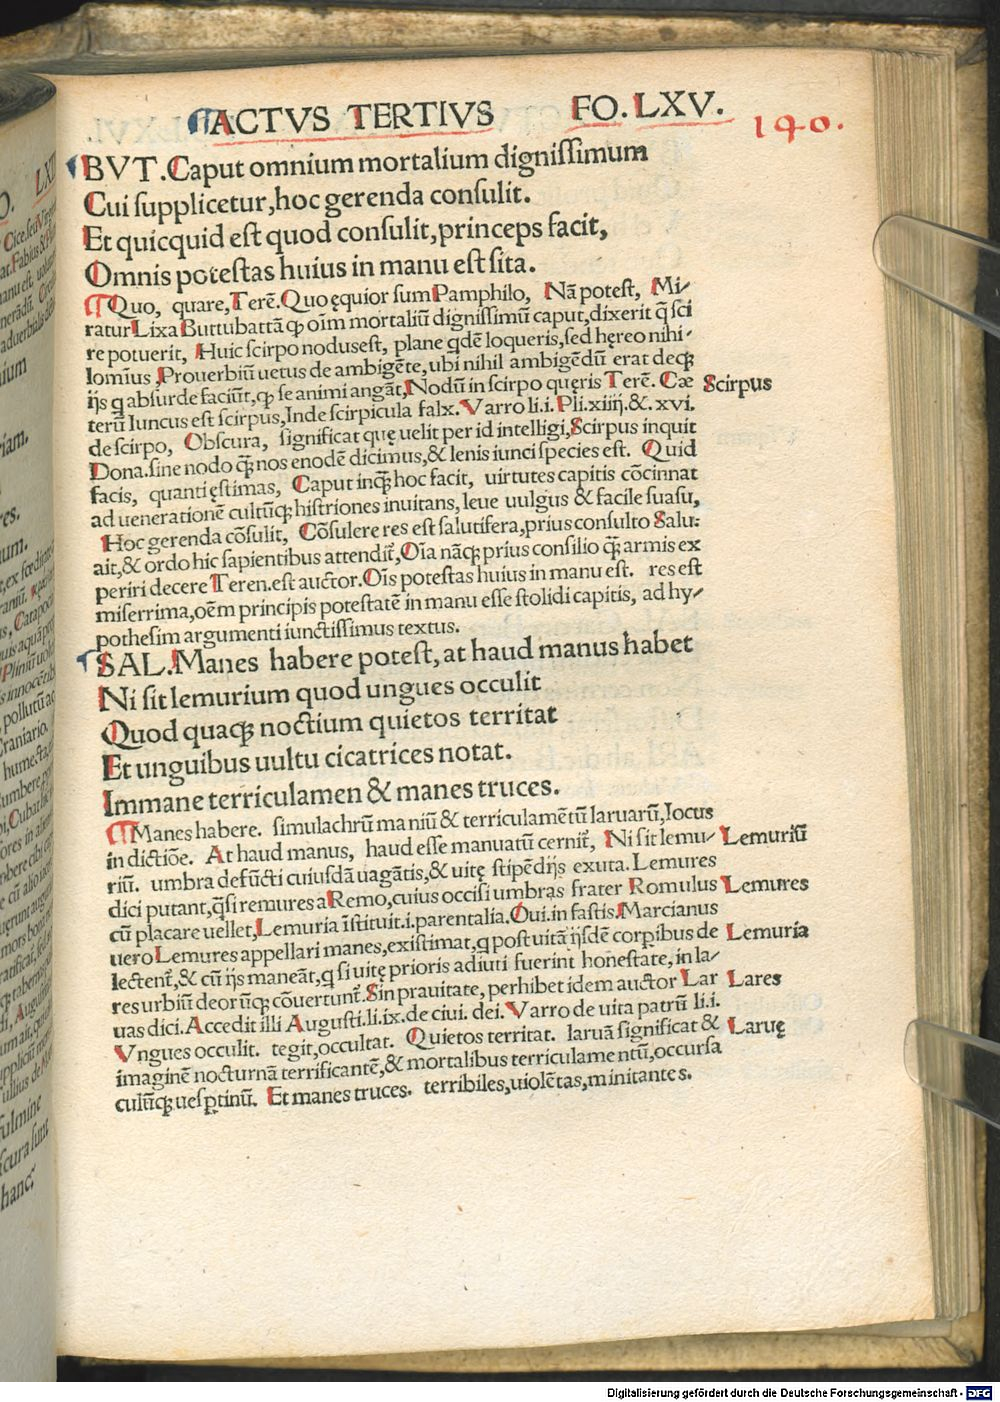 ACTVS TERTIVS FO. LXV.
140.
BVT. Caput omnium mortalium digniſſimum
Cui ſupplicetur, hoc gerenda conſulit.
Et quicquid eſt quod conſulit, princeps facit,
Omnis poteſtas huius in manu eſt ſita.
¶Quo, quare, Terẽ. Quo ęquior ſum Pamphilo, Nã poteſt, Mi⸗
ratur Lixa Buttubattã ꝙ oĩm mortaliũ digniſſimũ caput, dixerit q̃ ſci
re potuerit, Huic ſcirpo nodus eſt, plane qdẽ loqueris, ſed hęreo nihi⸗
lominus, Prouerbiũ uetus de ambigẽte, ubi nihil ambigẽdũ erat deqꝫ
ijs q abſurde faciũt, ꝙ ſe animi angãt, Nodũ in ſcirpo quęris Terẽ. Cæ
terũ Iuncus eſt ſcirpus, Inde ſcirpicula falx. Varro li.i. Pli. xiiij. &. xvi.
de ſcirpo, Obſcura, ſignificat quę uelit per id intelligi, Scirpus inquit
Dona. ſine nodo q̃ꝫ nos enodẽ dicimus, & lenis iunci ſpecies eſt. Quid
facis, quanti ęſtimas, Caput inq̃ꝫ hoc facit, uirtutes capitis cõcinnat
ad uenerationẽ cultũqꝫ hiſtriones inuitans, leue uulgus & facile ſuaſu,
Hoc gerenda cõſulit, Cõſulere res eſt ſalutifera, prius conſulto Salu⸗
ait, & ordo hic ſapientibus attendit̃, Oĩa nãqꝫ prius conſilio q̃ꝫ armis ex
periri decere Teren. eſt auctor. Oĩs poteſtas huius in manu eſt. res eſt
miſerrima, oẽm principis poteſtatẽ in manu eſſe ſtolidi capitis, ad hy⸗
potheſim argumenti iunctiſſimus textus.
Scirpus
SAL. Manes habere poteſt, at haud manus habet
Ni ſit lemurium quod ungues occulit
Quod quaqꝫ noctium quietos territat
Et unguibus uultu cicatrices notat.
Immane terriculamen & manes truces.
¶Manes habere. ſimulachrũ maniũ & terriculamẽtũ laruarũ, Iocus
in dictiõe. At haud manus, haud eſſe manuatũ cernit̃, Ni ſit lemu⸗
riũ. umbra defũcti cuiuſdã uagãtis, & uitę ſtipẽdijs exuta. Lemures
dici putant, q̃ſi remures a Remo, cuius occiſi umbras frater Romulus
cũ placare uellet, Lemuria ĩſtituit. i. parentalia. Oui. in faſtis. Marcianus
uero Lemures appellari manes, exiſtimat, q poſt uitã ijſdẽ corpibus de
lectent̃, & cũ ijs maneãt, q ſi uitę prioris adiuti fuerint honeſtate, in la⸗
res urbiũ deorũqꝫ cõuertunt̃. Sin prauitate, perhibet idem auctor Lar
uas dici. Accedit illi Auguſti. li. ix. de ciui. dei. Varro de uita patrũ li.i.
Vngues occulit. tegit, occultat. Quietos territat. laruã ſignificat &
imaginẽ nocturnã terrificantẽ, & mortalibus terriculamentũ, occurſa
culũqꝫ ueſptinũ. Et manes truces. terribiles, uiolẽtas, minitantes.
Lemuriũ
Lemures
Lemuria
Lares
Laruę
Digitalisierung gefördert durch die Deutsche Forschungsgemeinschaft - DFG